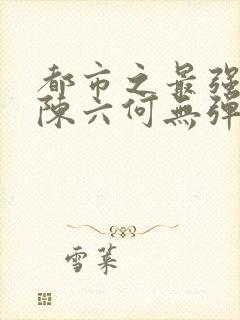 都市之最强
陈六何無弹
雪菜